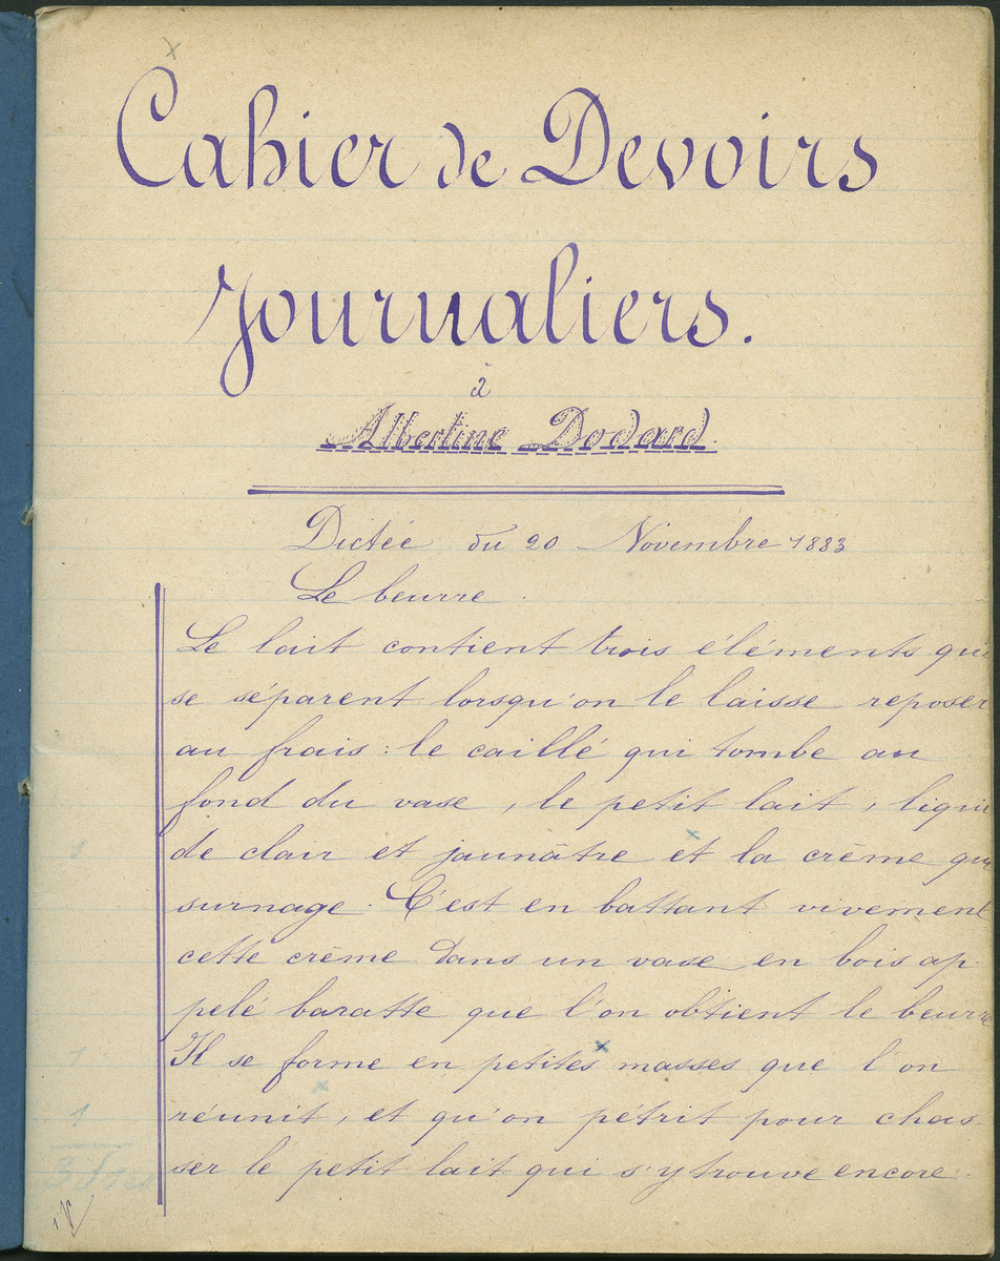 Cahier de Devoirs
Journaliers.
à
Albertine Dodard.
Dictée du 20 Novembre 1883
Le beurre.
Le lait contient trois éléments qui
se séparent lorsqu'on le laisse reposer
au frais : le caillé qui tombe au
fond du vase, le petit lait, liqui
de clair et jaunâtre et la crème qui
surnage. C'est en battant vivement
cette crème dans un vase en bois ap
pelé baratte que l'on obtient le beurre
Il se forme en petites masses que l'on
réunit, et qu'on pétrit pour chas
ser le petit lait qui s'y trouve encore.
1
1
1